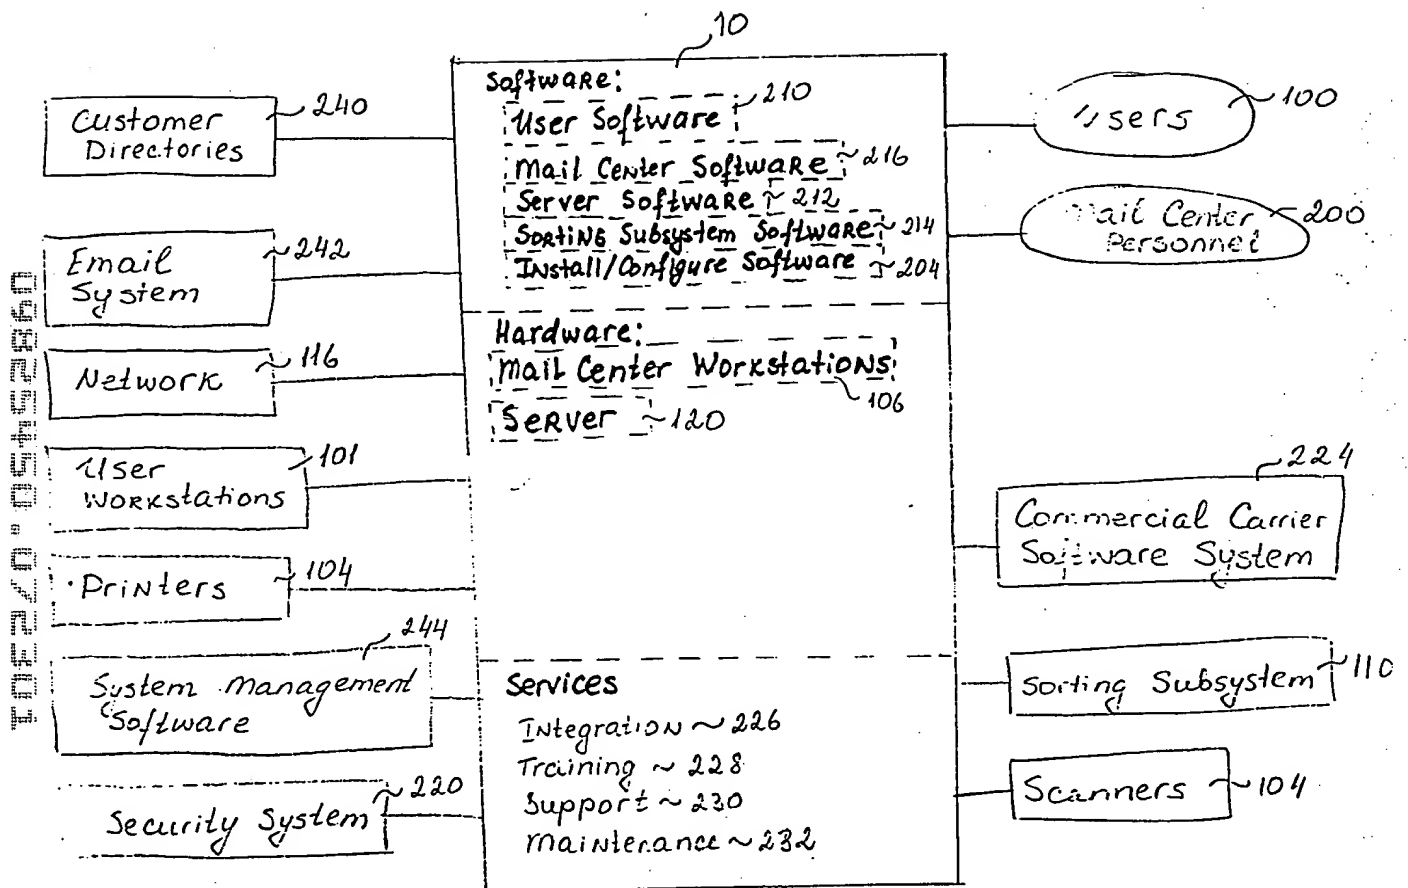 10
Customer
Directories
240
Email
System
242
Network
116
User
Workstations
101
Printers
104
System Management
Software
244
Security System
220
Software:
User Software
210
Mail Center Software
216
Server Software
212
Sorting Subsystem Software
214
Install/Configure Software
204
Hardware:
Mail Center Workstations
106
Server
120
Services
Integration ~ 226
Training ~ 228
Support ~ 230
Maintenance ~ 232
Users
100
Mail Center
Personnel
200
Commercial Carrier
Software System
224
Sorting Subsystem
110
Scanners
104